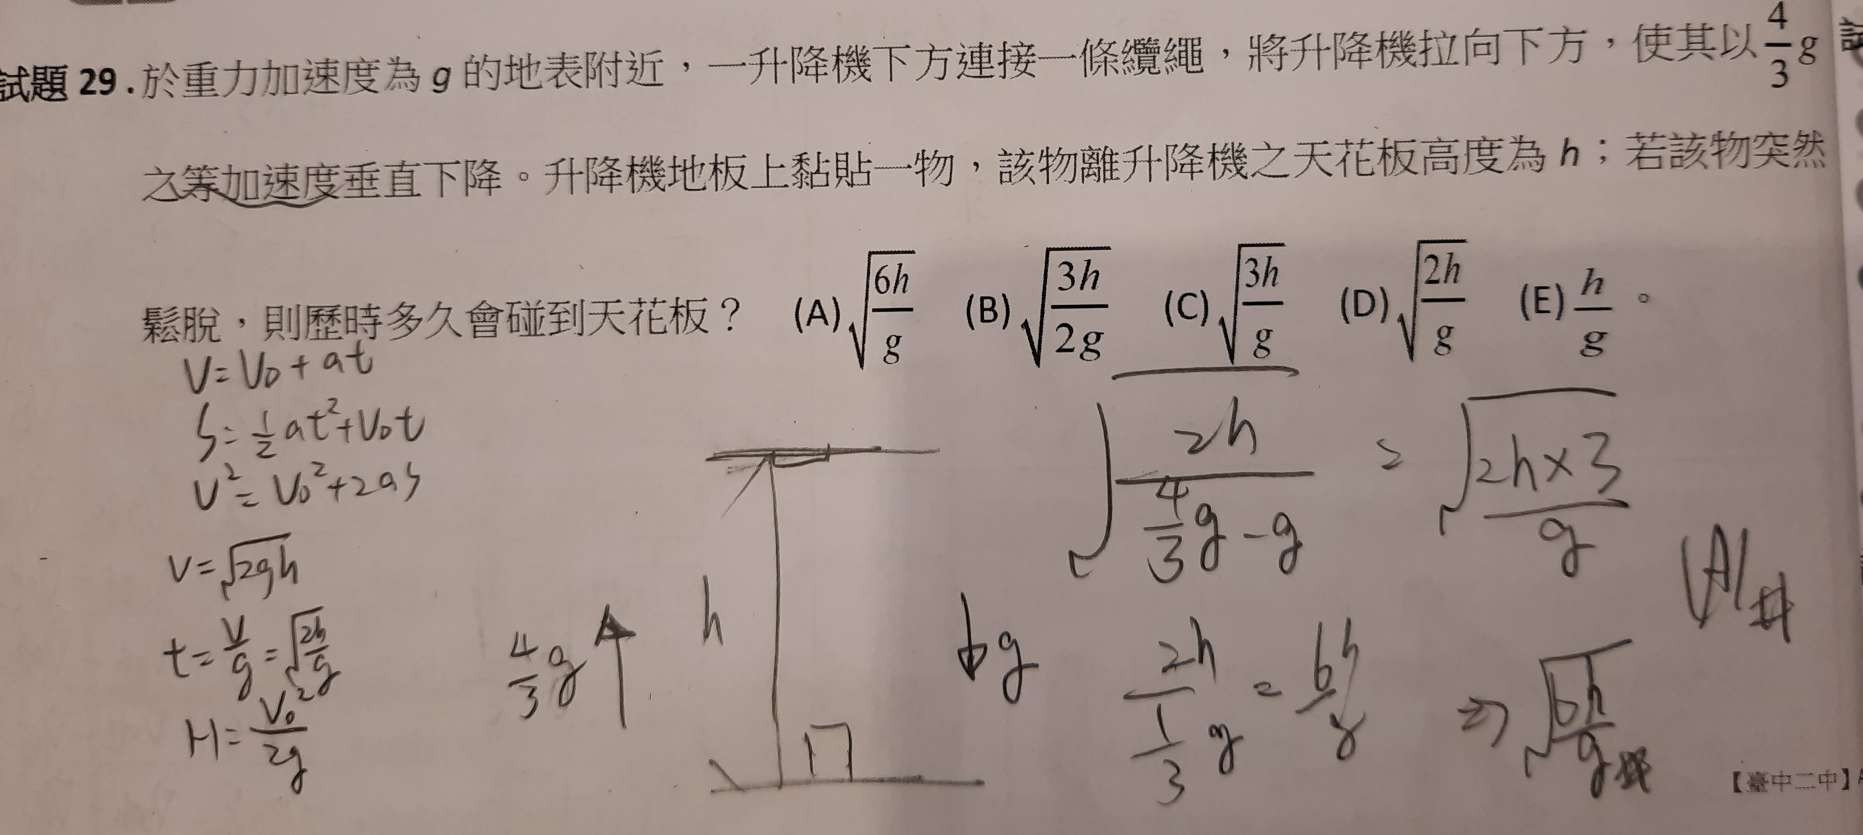 試題 29 . 於重力加速度為 g 的地表附近，一升降機下方連接一條纜繩，將升降機拉向下方，使其以 4/3 g
之等加速度垂直下降。升降機地板上黏貼一物，該物離升降機之天花板高度為 h；若該物突然
鬆脫，則歷時多久會碰到天花板？ (A) √(6h/g) (B) √(3h/2g) (C) √(3h/g) (D) √(2h/g) (E) h/g 。
V = V₀ + at
S = 1/2 at² + V₀t
V² = V₀² + 2aS
V = √2gh
t = V/g = √(2h/g)
H = V₀²/2g
4/3 g
h
g
√(2h/(4/3 g - g)) = √(2h×3/g)
(A)#
2h/(1/3 g) = 6h/g ⇒ √(6h/g) #
【臺中二中】